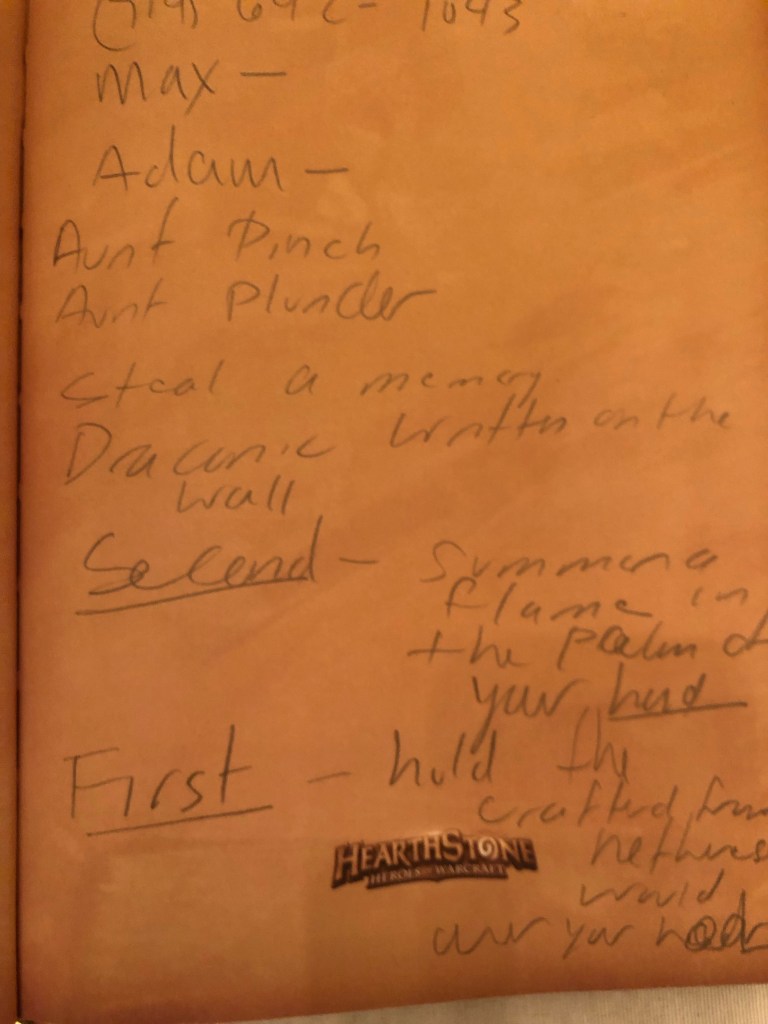 Max —
Adam —
Aunt Pinch
Aunt Plunder
Steal a memory
Draconic written on the
wall
Second — Summon a
flame in
the palm of
your hand
First — hold the
crafted from
would
over your head
HEARTHSTONE
HEROES OF WARCRAFT